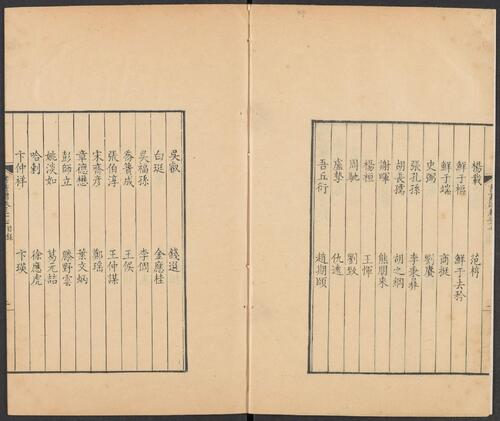 楊載 范梈
鮮于樞 鮮于去矜
鮮于端 商挺
史弼 劉賡
張孔孫 李秉彝
胡長孺 胡之綱
謝暉 熊朋來
楊桓 王惲
周馳 劉致
盧摯 仇遠
吾丘衍 趙期頤
吳叡 錢選
白珽 金應桂
吳福孫 李倜
喬簣成 王俁
張伯淳 王仲謀
宋齊彥 鄭瑤
章德懋 葉文炳
彭師立 滕野雲
姚淡如 葛元喆
哈剌 徐應虎
卞仲祥 卞瑛